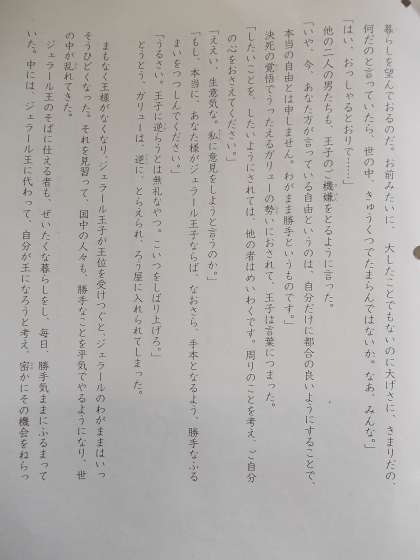 暮らしを望んでおるのだ。お前みたいに　大したことでもないのに大げさに、きまりだの、
何だのと言っていたら、世の中、きゅうくつでたまらんではないか。なあ、みんな。」
「はい、おっしゃるとおりで……。」
他の二人の男たちも、王子のご機嫌をとるように言った。
「いや、今、あなた方が言っている自由というのは、自分だけに都合の良いようにすることで、
本当の自由とは申しません。わがまま勝手というものです。」
決死の覚悟でうったえるガリューの勢いにおされて、王子は言葉につまった。
「したいことを、したいようにされては、他の者はめいわくです。周りのことを考え、ご自分
の心をおさえてください。」
「ええい、生意気な。私に意見をしようと言うのか。」
「もし、本当に、あなた様がジェラール王子ならば、なおさら、手本となるよう、勝手なふる
まいをつつしんでください。」
「うるさい。王子に逆らうとは無礼なやつ。こいつをしばり上げろ。」
とうとう、ガリューは、逆に、とらえられ、ろう屋に入れられてしまった。
まもなく王様がなくなり、ジェラール王子が王位を受けつぐと、ジェラールのわがままはいっ
そうひどくなった。それを見習って、国中の人々も、勝手なことを平気でやるようになり、世
の中が乱れてきた。
ジェラール王のそばに仕える者も、ぜいたくな暮らしをし、毎日、勝手気ままにふるまって
いた。中には、ジェラール王に代わって、自分が王になろうと考え、密かにその機会をねらっ